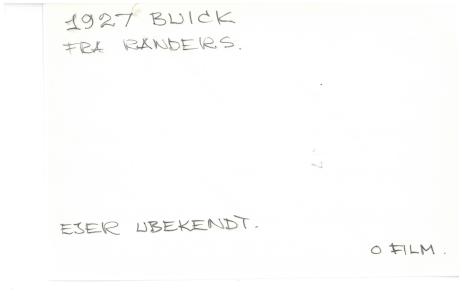 1927 BUICK
FRA RANDERS.
EJER UBEKENDT.
O FILM.